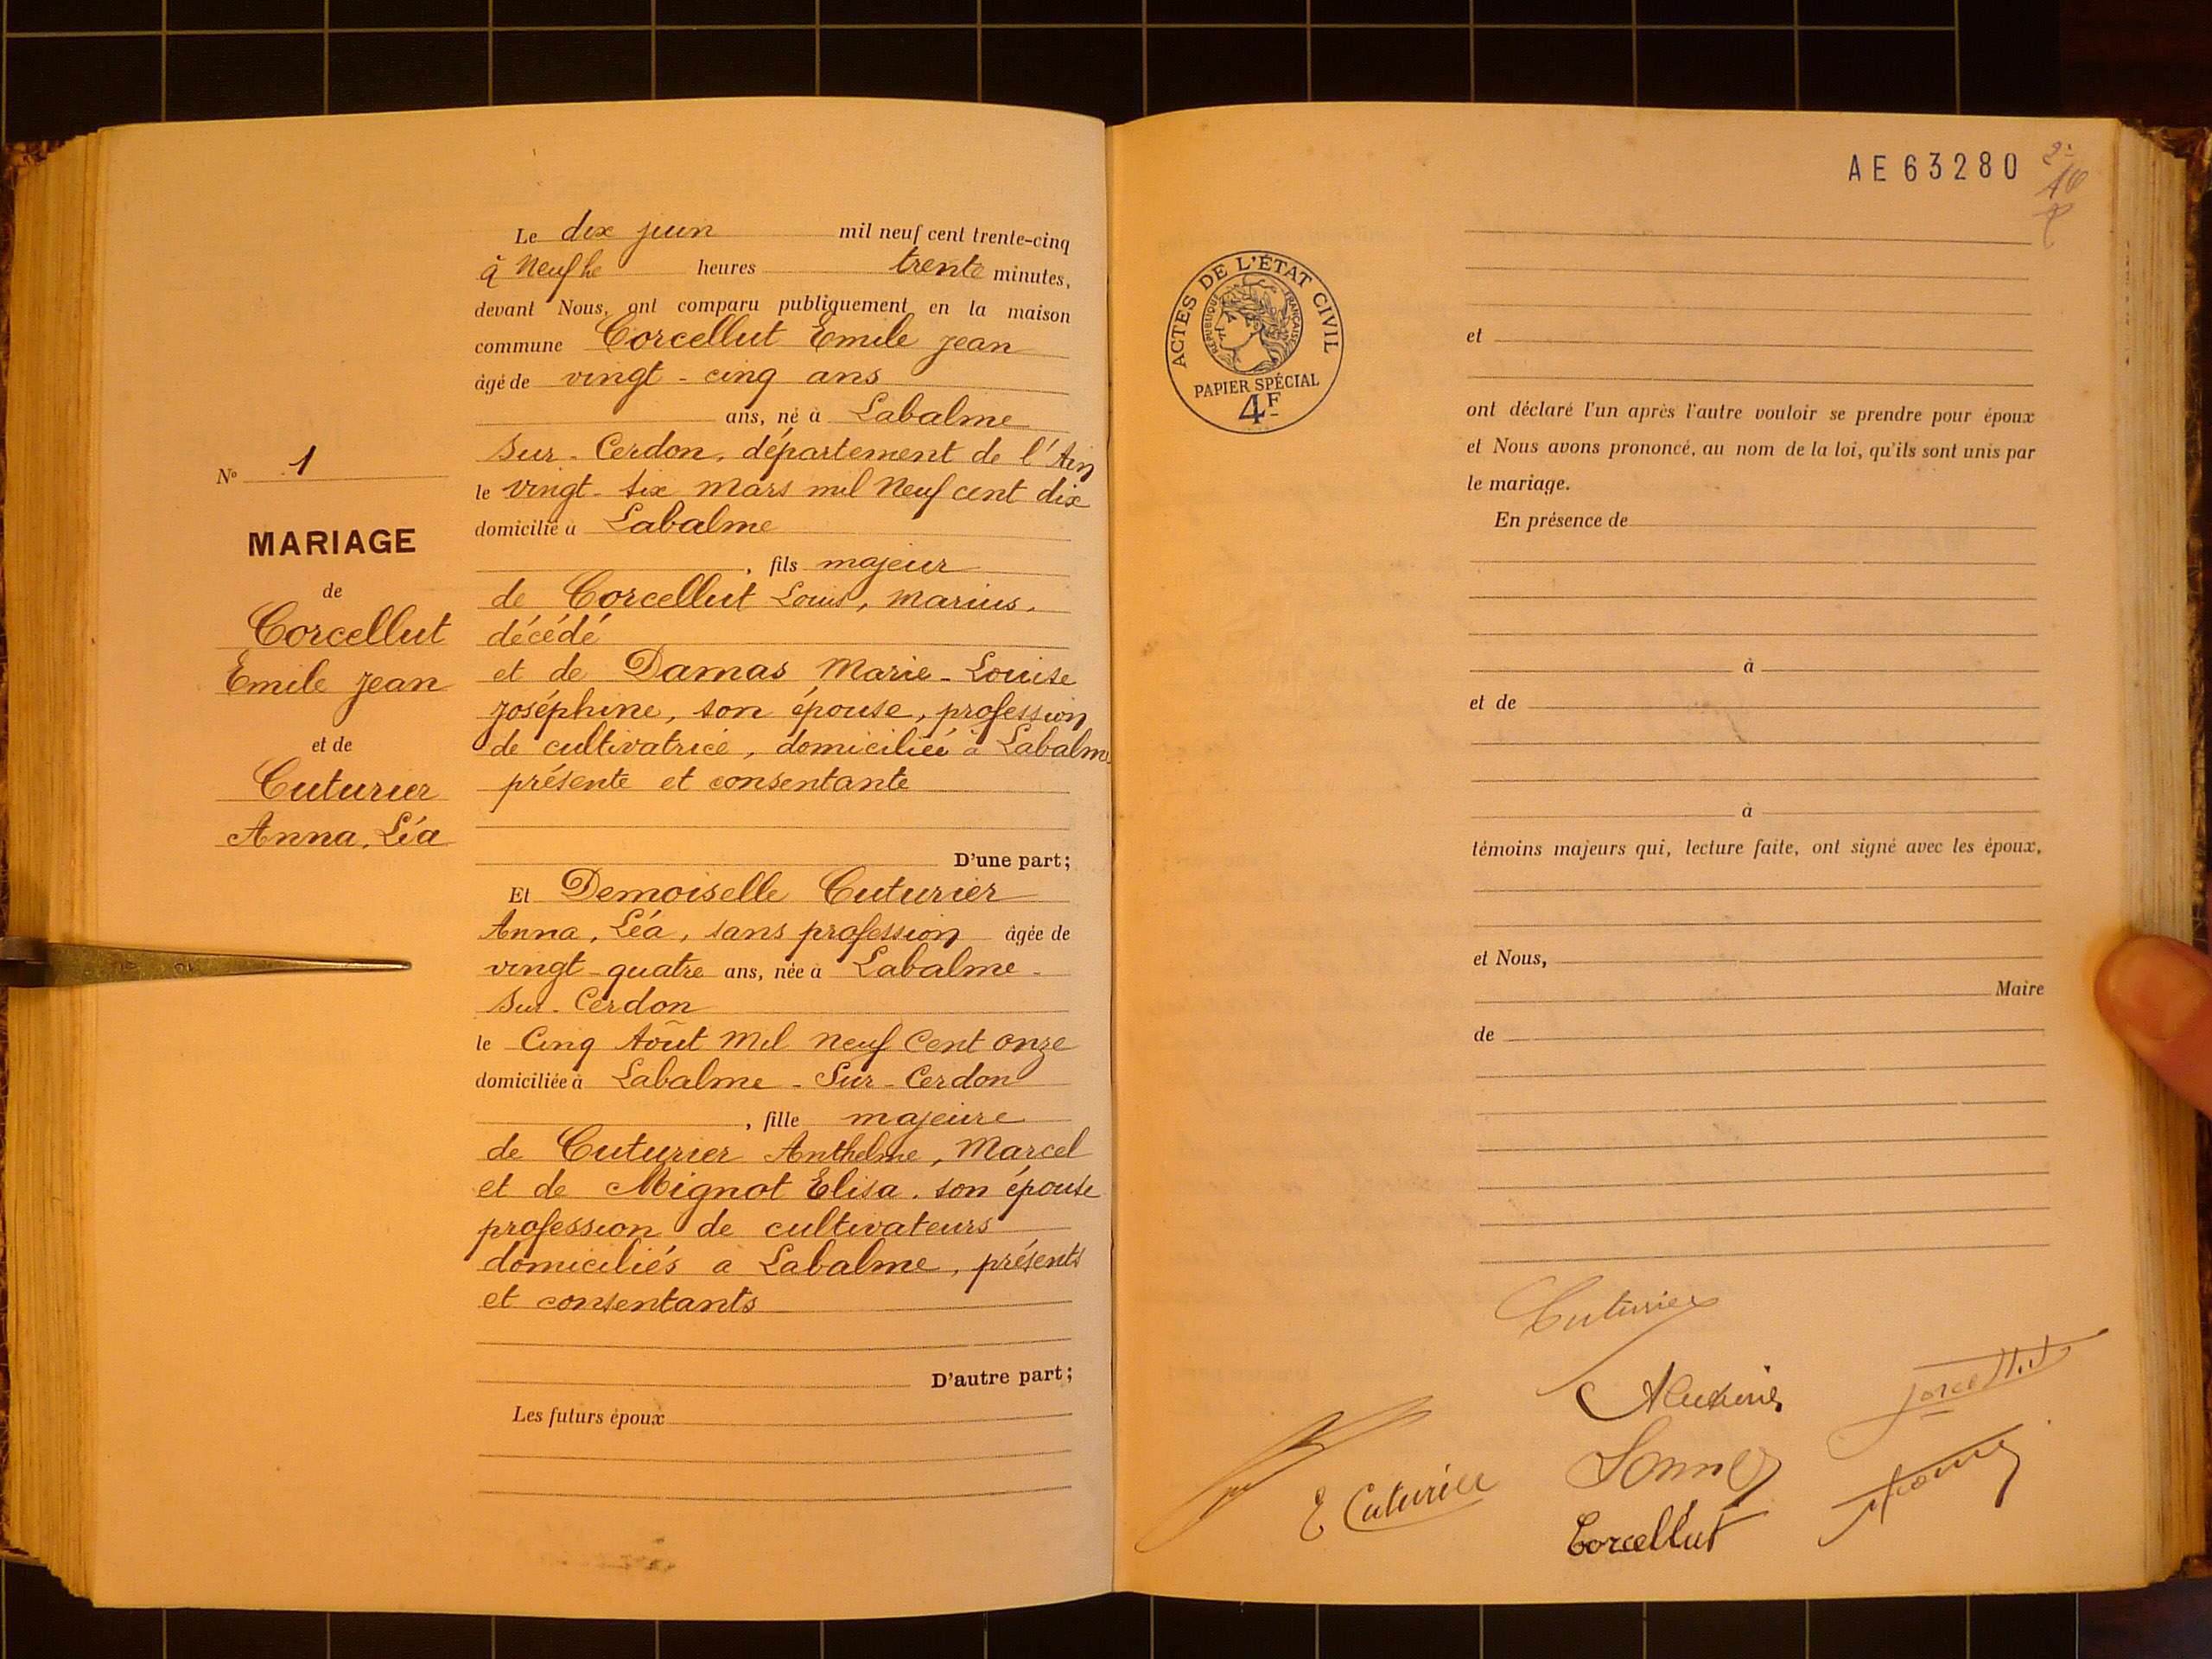 Le dix juin mil neuf cent trente-cinq
à Neuf he heures trente minutes,
devant Nous, ont comparu publiquement en la maison
commune Corcellut Emile Jean
âgé de vingt-cinq ans
ans, né à Labalme
sur-Cerdon, département de l'Ain
le vingt-six mars mil neuf cent dix
domicilié à Labalme
, fils majeur
de Corcellut Louis, Marius,
décédé
et de Damas Marie-Louise
Joséphine, son épouse, profession
de cultivatrice, domiciliée à Labalme
présente et consentante
D'une part;
Et Demoiselle Cuturier
Anna, Léa, sans profession âgée de
vingt-quatre ans, née à Labalme-
Sur-Cerdon
le Cinq Août mil neuf Cent onze
domiciliée à Labalme-Sur-Cerdon
, fille majeure
de Cuturier Anthelme, Marcel
et de Mignot Elisa, son épouse
profession de cultivateurs
domiciliés a Labalme, présents
et consentants
D'autre part;
Les futurs époux
No 1
MARIAGE
de
Corcellut
Emile Jean
et de
Cuturier
Anna, Léa
AE63280
ACTES DE L'ÉTAT CIVIL
RÉPUBLIQUE FRANÇAISE
PAPIER SPÉCIAL
4F
et
ont déclaré l'un après l'autre vouloir se prendre pour époux
et Nous avons prononcé, au nom de la loi, qu'ils sont unis par
le mariage.
En présence de
à
et de
à
témoins majeurs qui, lecture faite, ont signé avec les époux,
et Nous,
Maire
de
Cuturier
Corcellut
E Cuturier
Corcellut